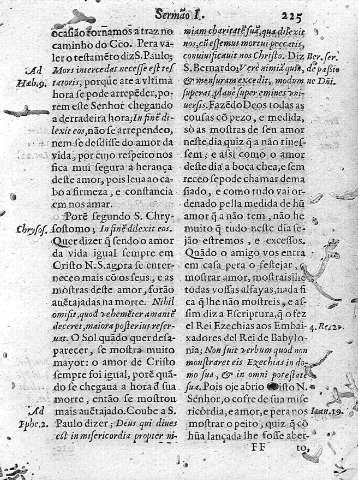 Sermão I. 225
ocasião tornamos a traz no
caminho do Ceo. Pera va-
lero testamẽto diz S. Paulo,
Ad Mors intercedat necesse est tes-
Hæb. 9. tatoris, porque ate a vltima
hora se pode arrepẽder, po-
rem este Senhor chegando
a derradeira hora; In finẽ di-
lexit eos, não se arrependeo,
nem se desdisse do amor da
vida, por cujo respeito nos
fica mui segura a herança
deste amor, pois leua ao ca-
bo a firmeza, e constancia
em nos amar.
Porẽ segundo S. Chry-
Chrysos. sostomo; In finẽ dilexit eos.
Quer dizer q̃ sendo o amor
da vida igual sempre em
Cristo N.S. agora se enter-
neceo mais cõ os seus, e as
mostras deste amor, forão
auẽtajadas na morte. Nihil
omisit, quod vehemẽter amantẽ
deceret, maiora posterius reser-
uat. O Sol quãdo quer desa-
parecer, se mostra muito
mayor: o amor de Cristo
sempre foi igual, porẽ quã-
do se chegaua a hora d' sua
morte, então se mostrou
Ad mais auẽtajado. Coube a S.
Ephe. 2. Paulo dizer; Deus qui diues
est in misericordia propter ni-
miam charitatẽ suã, qua dilexit
nos, cũ essemus mortui peccatis,
conuiuificauit nos Christo. Diz Ber. ser.
S. Bernardo; Verè nimiã, quia de passio
& mensuram excedit, modum ne Dñi.
superat, plane super emines vni-
uersis. Fazẽdo Deos todas as
cousas cõ pezo, e medida,
só as mostras de seu amor
neste dia quiz q̃ a não tiues-
sem, e assi como o amor
deste dia a boca chea, e sem
receo se pode chamar dema-
siado, e como tudo vai or-
denado pella medida de hũ
amor q̃ a não tem, não he
muito q̃ tudo neste dia se-
jão estremos, e excessos.
Quãdo o amigo vos entra
em casa pera o festejar,
mostrar amor, mostraislhe
todas vossas alfayas, nada fi
ca q̃ lhe não mostreis, e as-
sim diz a Escriptura, q̃ o fez
el Rei Ezechias aos Embai- 4. Re. 20.
xadores del Rei de Babylo-
nia; Non fuit verbum quod non
monstraret eis Ezechias in do-
mo sua, & in omni potestate
sua. Pois oje abrio Cristo N.
Sẽnhor, o cofre de sua mise
ricórdia, e amor, e pera nos Ioan. 19.
mostrar o peito, quiz q̃ cõ
hũa lançada lhe fosse aber-
FF to,